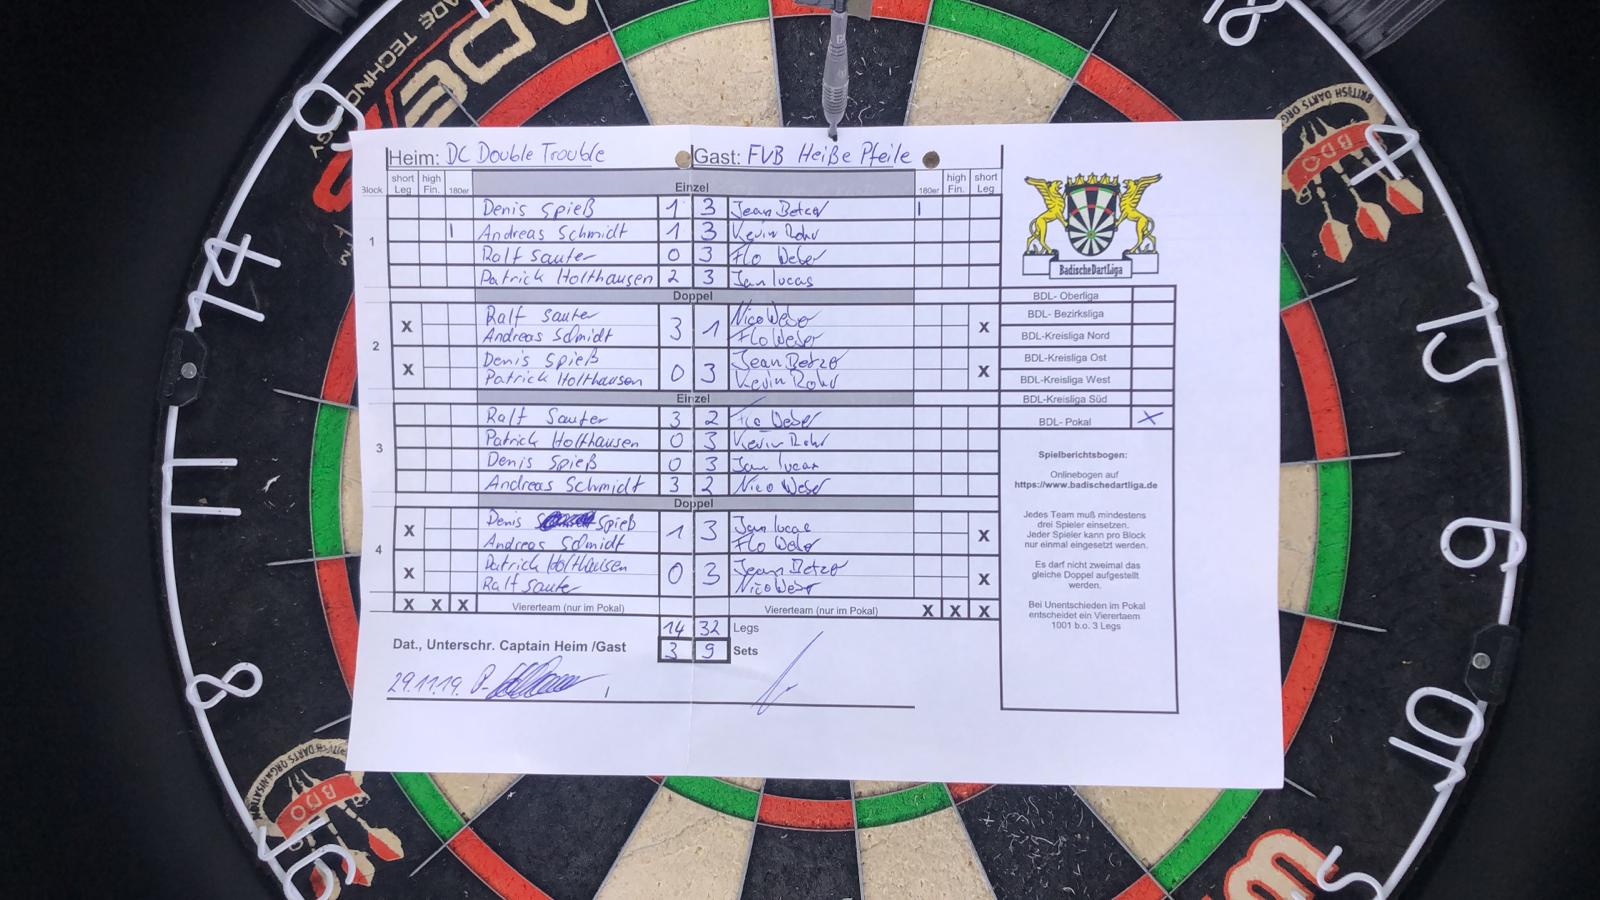 Heim: DC Double Trouble Gast: FVB Heiße Pfeile
Block short Leg high Fin. 180er Einzel 180er high Fin. short Leg
1
Denis Spieß 1 3 Jean Betzer |
| Andreas Schmidt 1 3 Kevin Rohr
Ralf Sauter 0 3 Flo Weber
Patrick Holthausen 2 3 Jan Lucas
Doppel
2
X Ralf Sauter 3 1 Nico Weber X
Andreas Schmidt Flo Weber
X Denis Spieß 0 3 Jean Betzer X
Patrick Holthausen Kevin Rohr
Einzel
3
Ralf Sauter 3 2 Flo Weber
Patrick Holthausen 0 3 Kevin Rohr
Denis Spieß 0 3 Jan Lucas
Andreas Schmidt 3 2 Nico Weber
Doppel
4
X Denis Spieß 1 3 Jan Lucas X
Andreas Schmidt Flo Weber
X Patrick Holthausen 0 3 Jean Betzer X
Ralf Sauter Nico Weber
X X X Viererteam (nur im Pokal) Viererteam (nur im Pokal) X X X
14 32 Legs
Dat., Unterschr. Captain Heim /Gast 3 9 Sets
29.11.19. P.
BadischeDartLiga
BDL- Oberliga
BDL- Bezirksliga
BDL-Kreisliga Nord
BDL-Kreisliga Ost
BDL-Kreisliga West
BDL-Kreisliga Süd
BDL- Pokal X
Spielberichtsbogen:
Onlinebogen auf
https://www.badischedartliga.de
Jedes Team muß mindestens
drei Spieler einsetzen.
Jeder Spieler kann pro Block
nur einmal eingesetzt werden.
Es darf nicht zweimal das
gleiche Doppel aufgestellt
werden.
Bei Unentschieden im Pokal
entscheidet ein Vierertaem
1001 b.o. 3 Legs
9
14
11
8
16
18
4
13
6
10
15
BDO
BDO